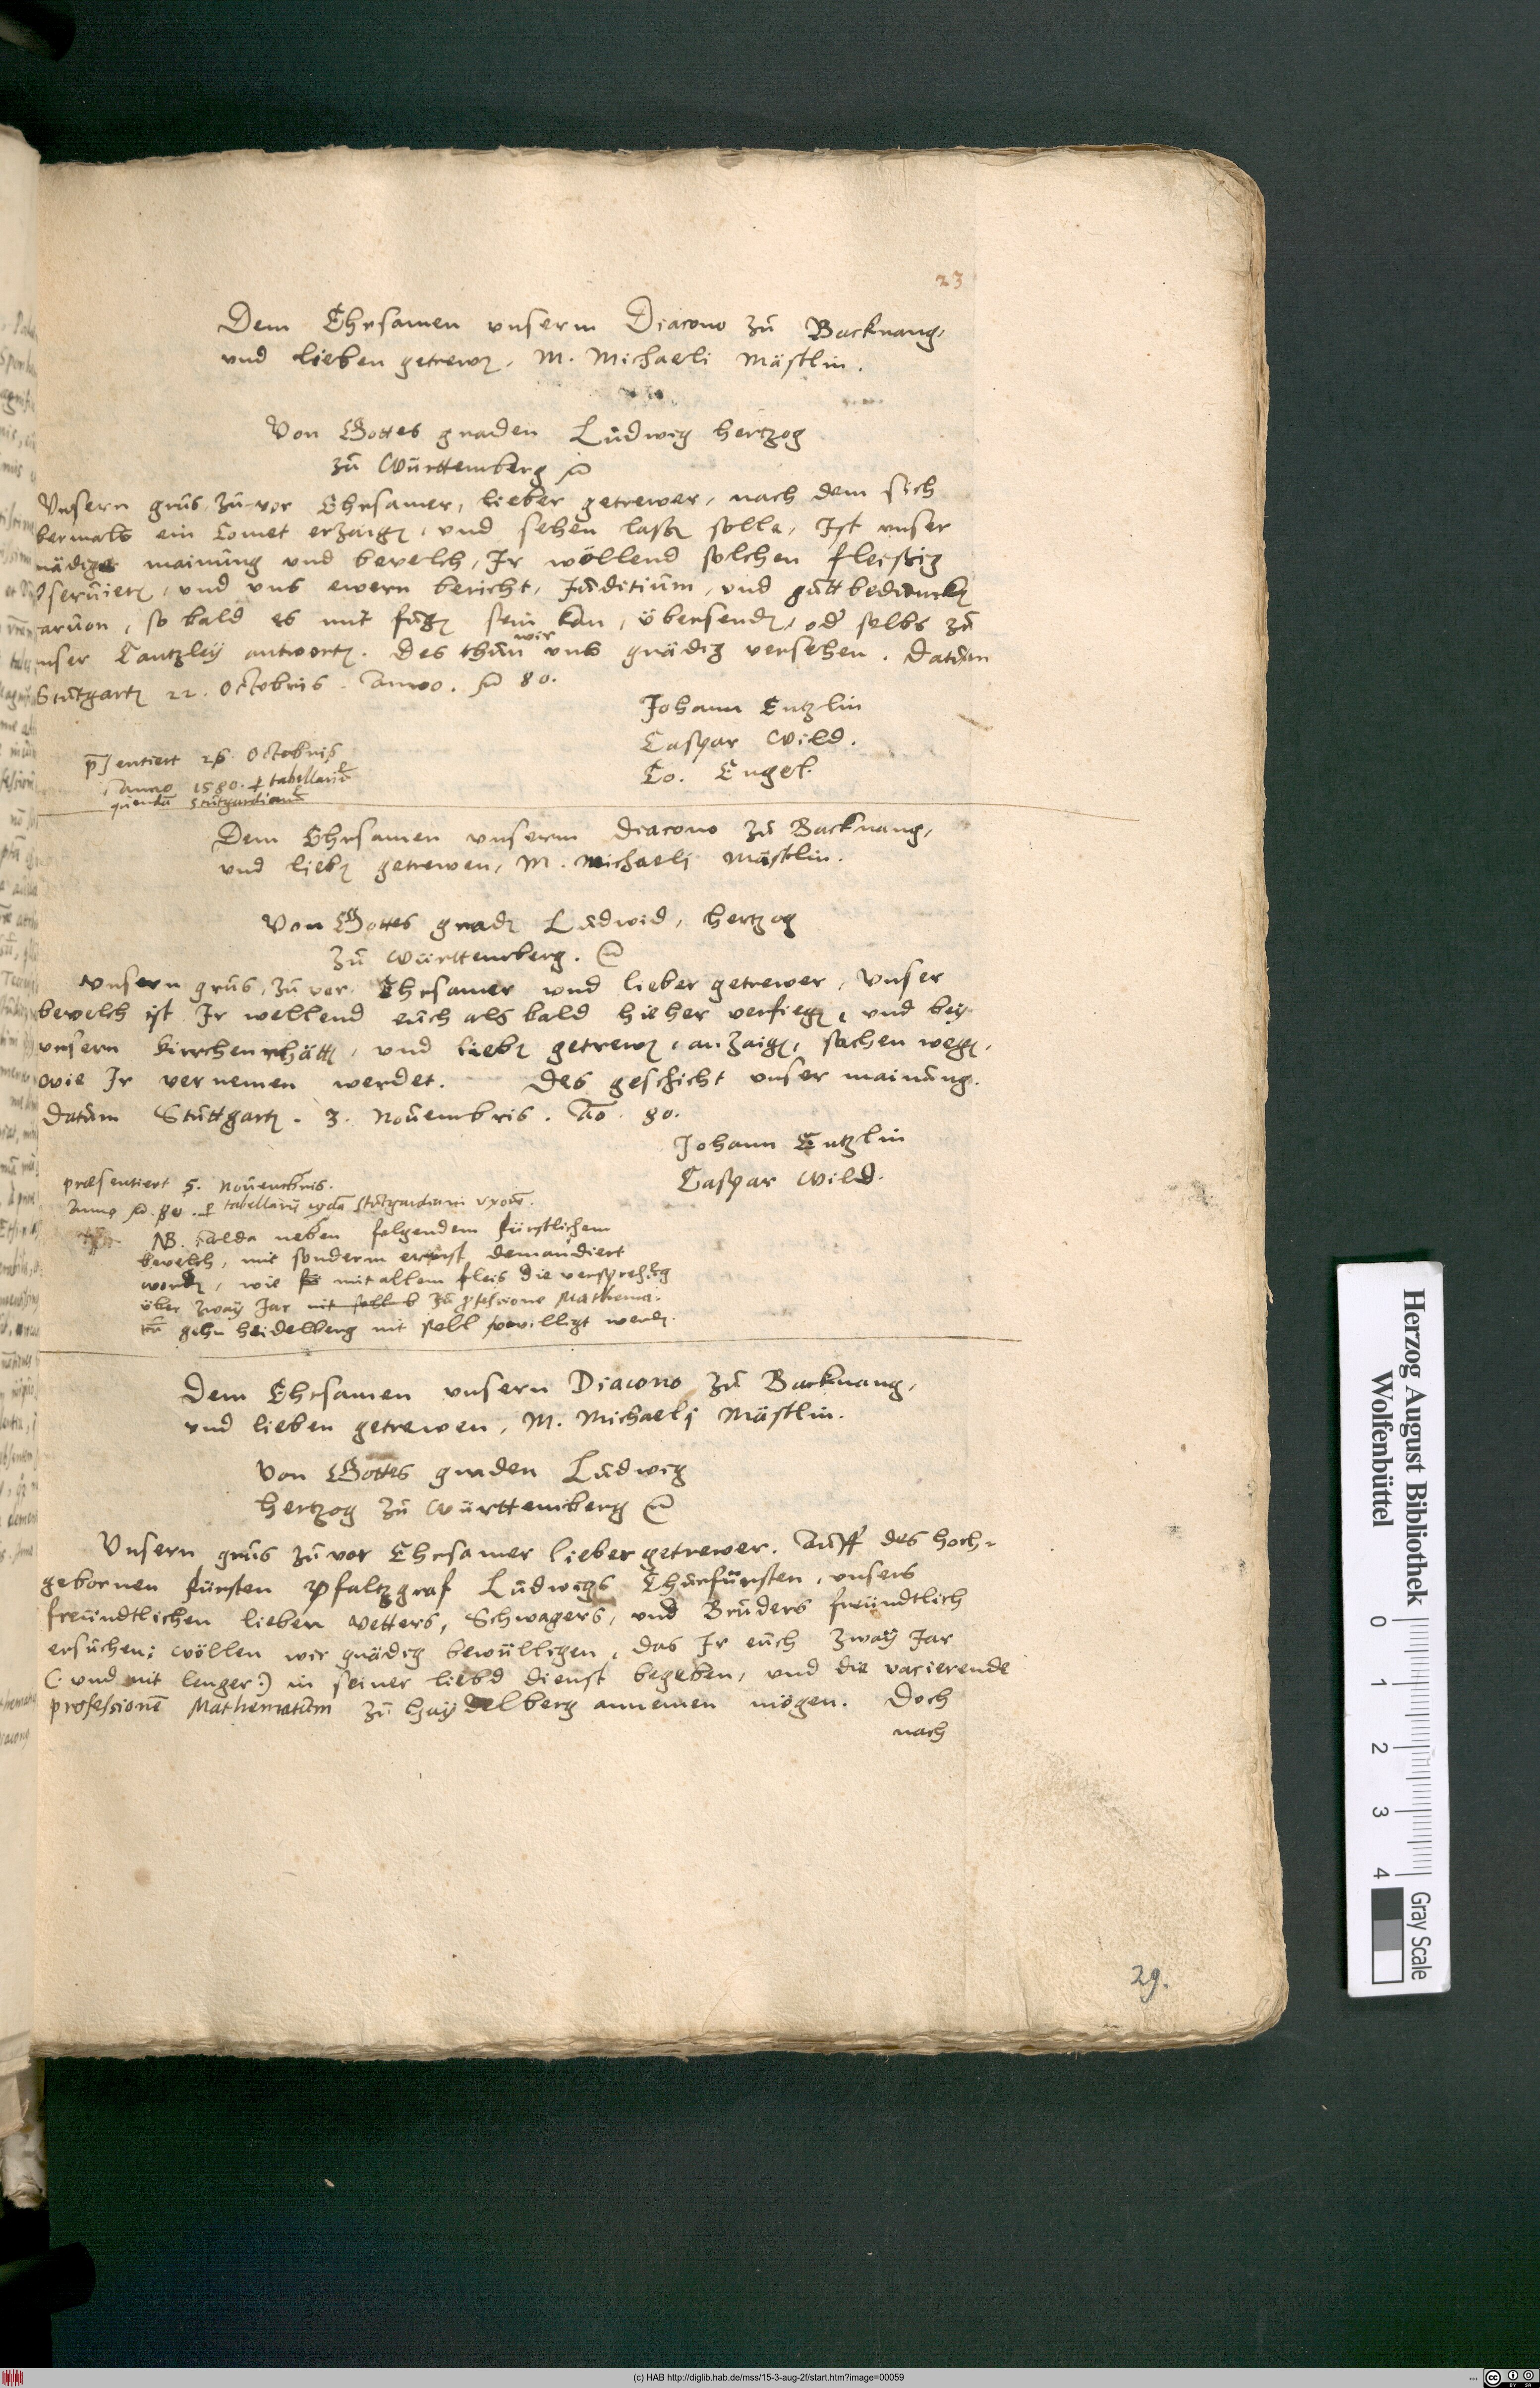 23
Dem Ehrsamen unserm Diacono zů Backnang,
und lieben getrewen, M. Michaeli Mästlin.
Von Gottes gnaden Ludwig hertzog
zů Württemberg
Unsern grůs zůvor Ehrsamer, lieber getrewer, nach dem sich
bermals ein Comet erzaigen, und sehen lassen solle, Ist unser
nädige mainůng und bevelch, Ir wöllend solchen fleissig
bserůieren, und uns ewern bericht, Iůditiům, und gůttbedůncken
arůon, so bald es mit fůgen sein kan, übersenden, oder selbs zů
unser Cantzley antworten. Des thůn wir uns gnädig versehen. Datům
Stůtgarten 22. Octobris. Anno. 80.
Johann Entzlin
Caspar Wild.
Co. Engel.
p̄sentiert 26 Octobris
Anno 1580. p tabellariū
quendā Stůtgardianū
Dem Ehrsamen unserm diacono zů Backnang,
und lieben getrewen, M. Michaeli Mästlin.
Von Gottes gnaden Lůdwid, hertzog
zů Württemberg.
Unsern grůs, zůvor Ehrsamer und lieber getrewer, Unser
bevelch ist Ir wellend eůch als bald hieher verfiegen, und bey
unsern kirrchenrhätten, und lieben getrewen, anzaigen, sachen wegen,
wie Ir vernemen werdet. Des geschicht unser mainůng.
Datům Stůttgarten. 3. Nouembris. Ao. 80.
Johann Entzlin
Caspar Wild.
præsentiert 5. Nouembris.
Anno 80. p tabellarij Stůtgardiani uxorē.
NB. alda neben folgendem fürstlichem
bevelch, mit sonderm ernst demandiert
worden, wie mit allem fleis die versprechung
über zway Jar zů professione Mathema-
tū gehn Heidelberg nit soll bewilligt werden.
Dem Ehrsamen unsern Diacono zů Backnang,
und lieben getrewen, M. Michaeli Mästlin.
Von Gottes gnaden Lůdwig
hertzog zů Württemberg
Unsern grůs zůvor Ehrsamer lieber getrewer. Auff des hoch-
gebornen fürsten Pfaltzgraf Lůdwigs Chůrfürsten, unsers
freündtlichen lieben Vetters, Schwagers, und Brůders freündtlich
ersůchen: wöllen wir gnädig bewülligen, das Ir eůch zway Jar
(: und nit lenger :) in seiner liebd dienst begeben, und die vacierende
professionē Mathematům zů Haydelberg annemen mögen. Doch
nach
29.
Herzog August Bibliothek
Wolfenbüttel
0 1 2 3 4
Gray Scale
(c) HAB http://diglib.hab.de/mss/15-3-aug-2f/start.htm?image=00059